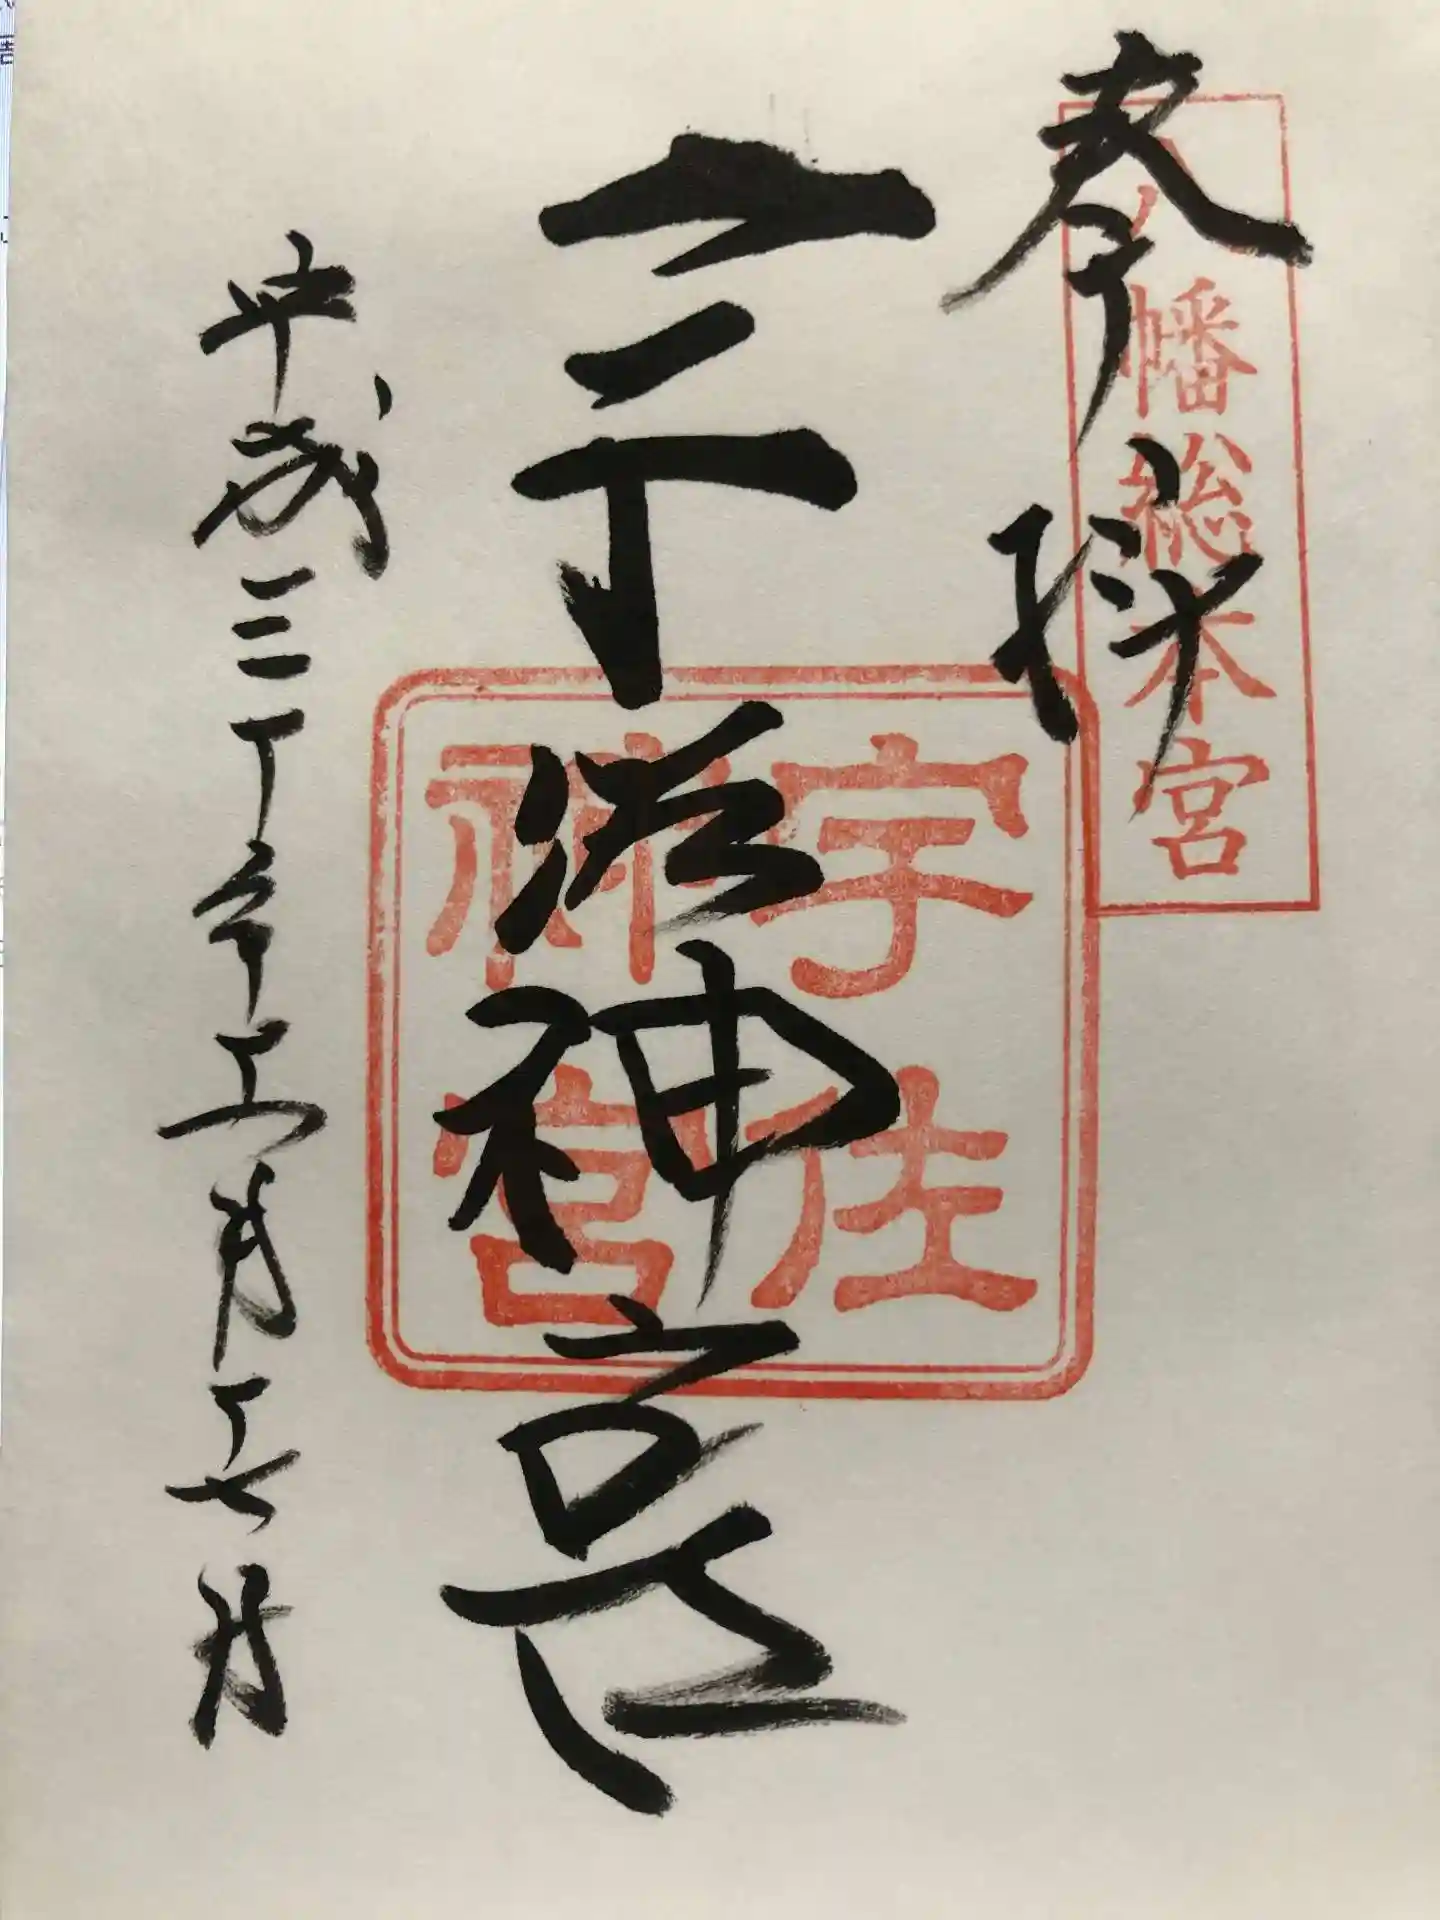 奉拝
八幡総本宮
宇佐神宮
宇佐
神宮
平成三十年十一月十七日